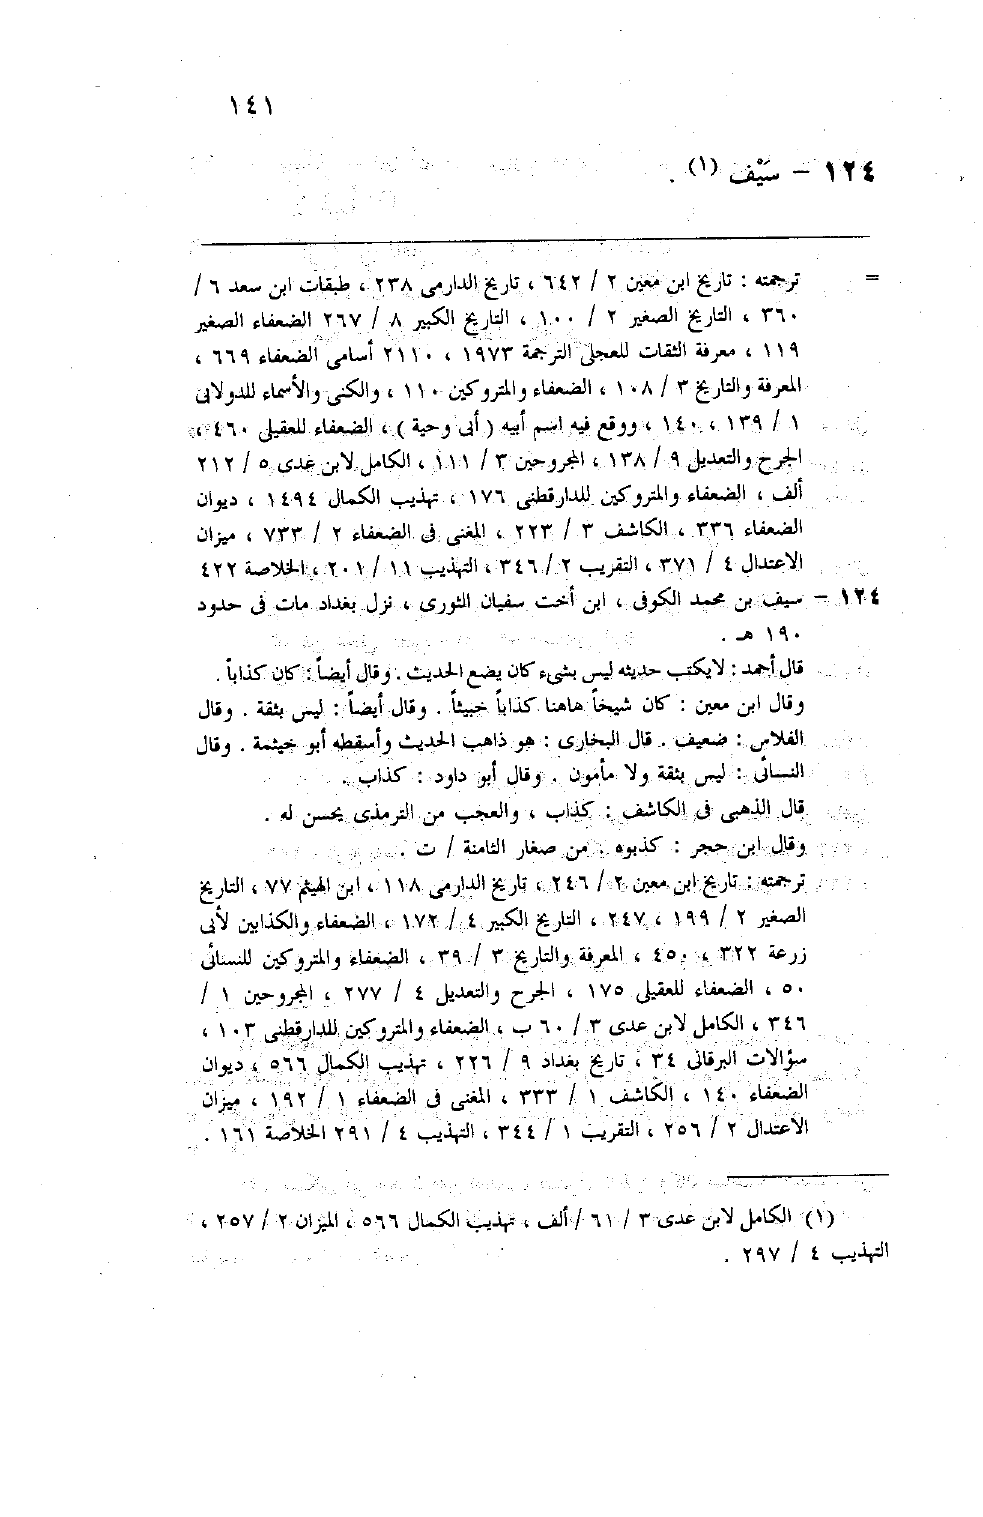 ١٤١
١٢٤ – سَيْف (١) .
= ترجمته : تاريخ ابن معين ٢ / ٦٤٢ ، تاريخ الدارمى ٢٣٨ ، طبقات ابن سعد ٦ /
٣٦٠ ، التاريخ الصغير ٢ / ١٠٠ ، التاريخ الكبير ٨ / ٢٦٧ الضعفاء الصغير
١١٩ ، معرفة الثقات للعجلى الترجمة ١٩٧٣ ، ٢١١٠ أسامى الضعفاء ٦٦٩ ،
المعرفة والتاريخ ٣ / ١٠٨ ، الضعفاء والمتروكين ١١٠ ، والكنى والأسماء للدولابى
١ / ١٣٩ ، ١٤٠ ، ووقع فيه اسم أبيه ( أبى وحية ) ، الضعفاء للعقيلى ٤٦٠ ،
الجرح والتعديل ٩ / ١٣٨ ، المجروحين ٣ / ١١١ ، الكامل لابن عدى ٥ / ٢١٢
ألف ، الضعفاء والمتروكين للدارقطنى ١٧٦ ، تهذيب الكمال ١٤٩٤ ، ديوان
الضعفاء ٣٣٦ ، الكاشف ٣ / ٢٢٣ ، المغنى فى الضعفاء ٢ / ٧٣٣ ، ميزان
الاعتدال ٤ / ٣٧١ ، التقريب ٢ / ٣٤٦ ، التهذيب ١١ / ٢٠١ ، الخلاصة ٤٢٢
١٢٤ – سيف بن محمد الكوفى ، ابن أخت سفيان الثورى ، نزل بغداد مات فى حدود
١٩٠ هـ .
قال أحمد : لايكتب حديثه ليس بشىء كان يضع الحديث . وقال أيضاً : كان كذاباً .
وقال ابن معين : كان شيخاً هاهنا كذاباً خبيثاً . وقال أيضاً : ليس بثقة . وقال
الفلاس : ضعيف . قال البخارى : هو ذاهب الحديث وأسقطه أبو خيثمة . وقال
النسائى : ليس بثقة ولا مأمون . وقال أبو داود : كذاب .
قال الذهبى فى الكاشف : كذاب ، والعجب من الترمذى يحسن له .
وقال ابن حجر : كذبوه . من صغار الثامنة / ت .
ترجمته : تاريخ ابن معين ٢ / ٢٤٦ ، تاريخ الدارمى ١١٨ ، ابن الهيثم ٧٧ ، التاريخ
الصغير ٢ / ١٩٩ ، ٢٤٧ ، التاريخ الكبير ٤ / ١٧٢ ، الضعفاء والكذابين لأبى
زرعة ٣٢٢ ، ٤٥٠ ، المعرفة والتاريخ ٣ / ٣٩ ، الضعفاء والمتروكين للنسائى
٥٠ ، الضعفاء للعقيلى ١٧٥ ، الجرح والتعديل ٤ / ٢٧٧ ، المجروحين ١ /
٣٤٦ ، الكامل لابن عدى ٣ / ٦٠ ب ، الضعفاء والمتروكين للدارقطنى ١٠٣ ،
سؤالات البرقانى ٣٤ ، تاريخ بغداد ٩ / ٢٢٦ ، تهذيب الكمال ٥٦٦ ، ديوان
الضعفاء ١٤٠ ، الكاشف ١ / ٣٣٣ ، المغنى فى الضعفاء ١ / ١٩٢ ، ميزان
الاعتدال ٢ / ٢٥٦ ، التقريب ١ / ٣٤٤ ، التهذيب ٤ / ٢٩١ الخلاصة ١٦١ .
(١) الكامل لابن عدى ٣ / ٦١ / ألف ، تهذيب الكمال ٥٦٦ ، الميزان ٢ / ٢٥٧ ،
التهذيب ٤ / ٢٩٧ .